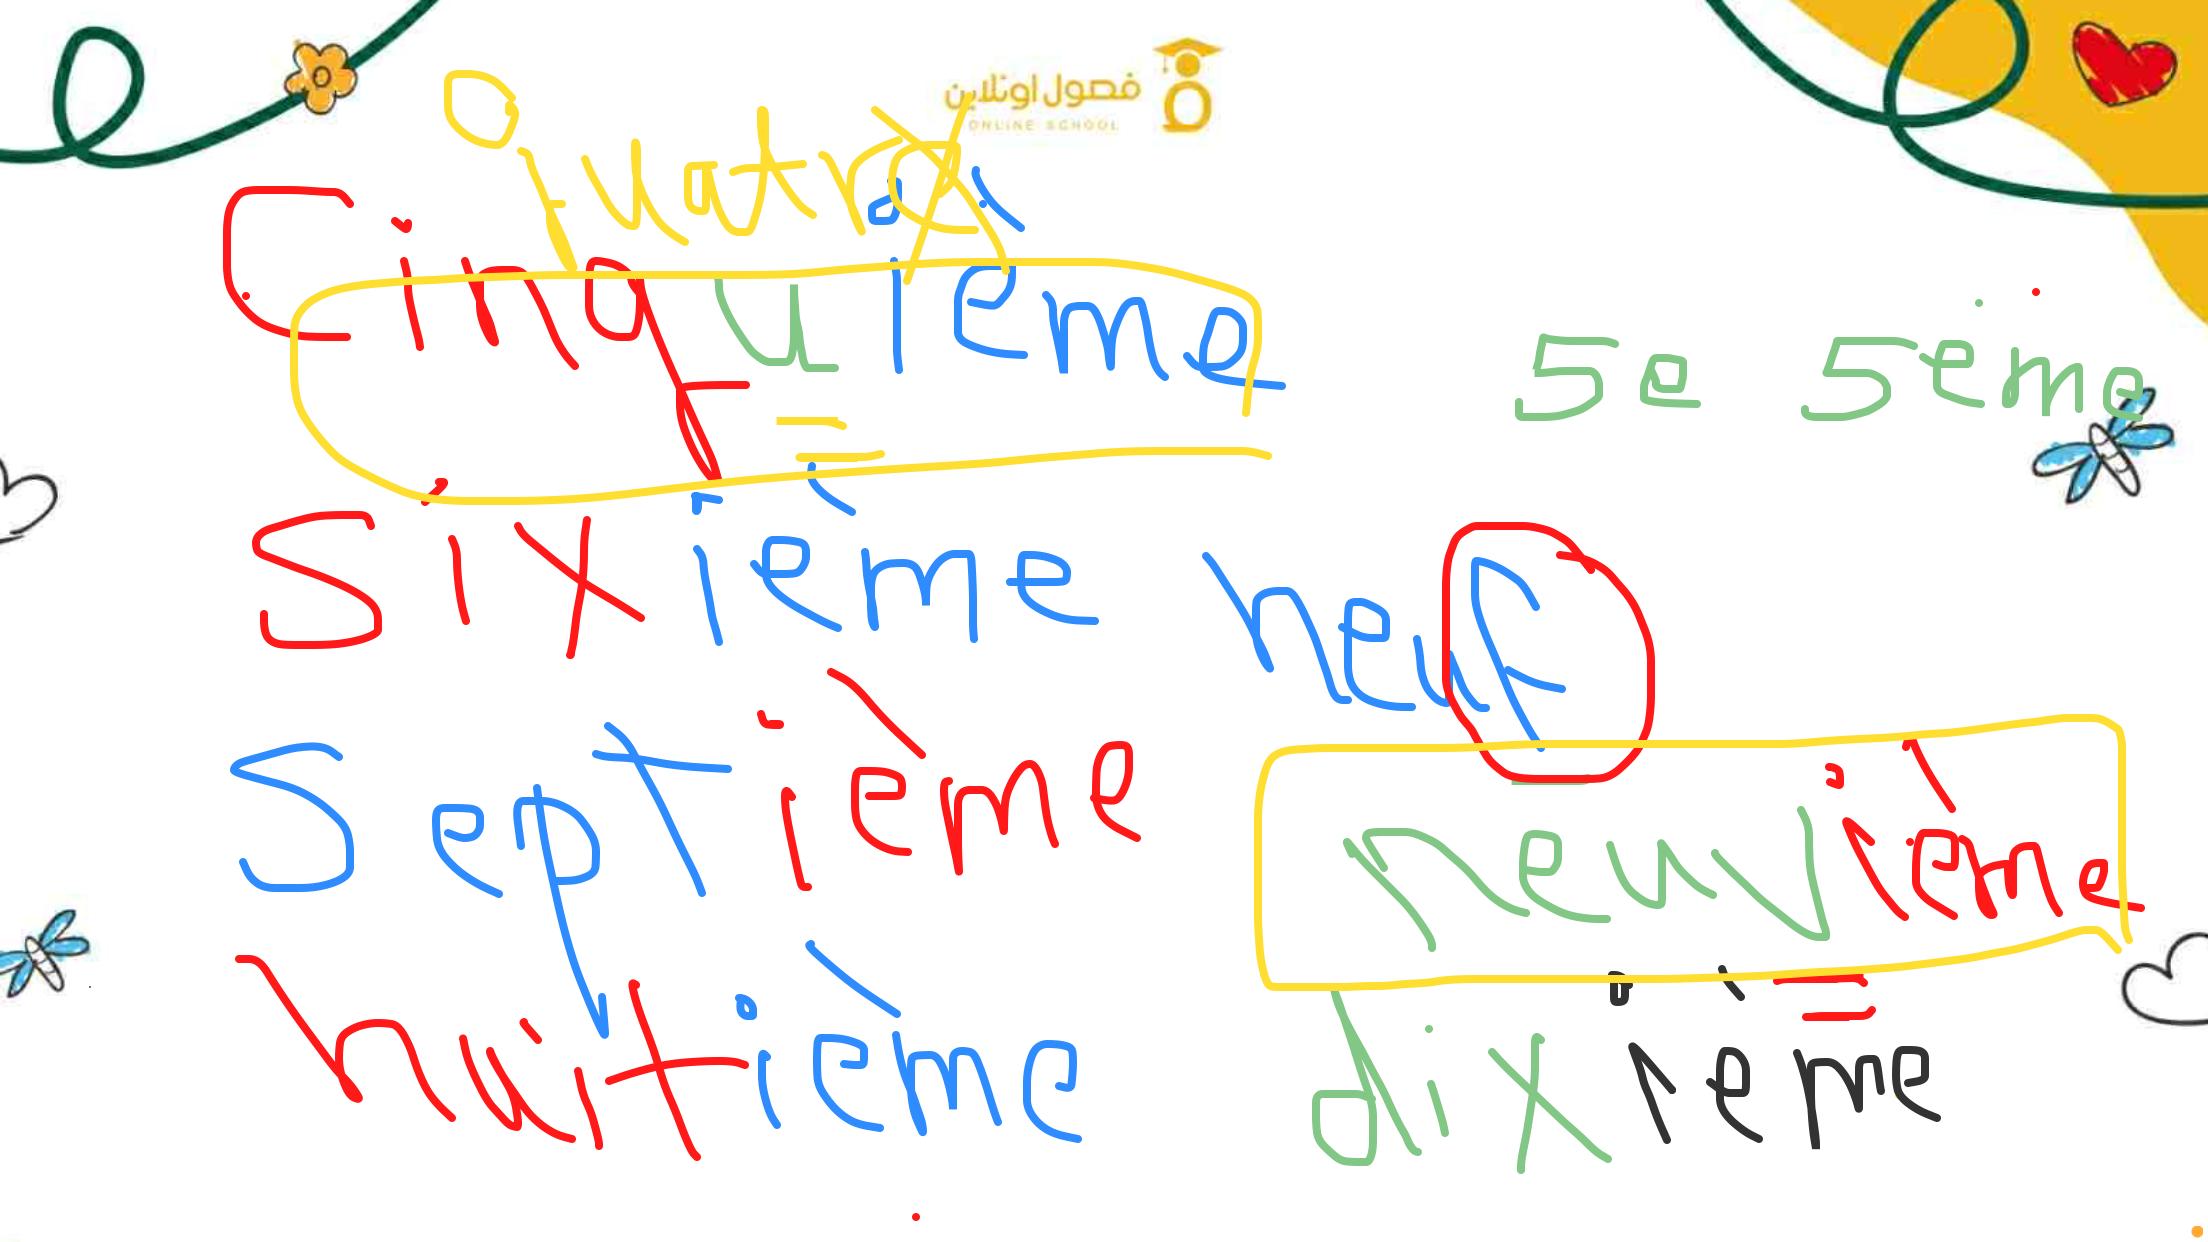 فصول اونلاين
ONLINE SCHOOL
quatre
cinquième
5e 5eme
sixième
neuf
septième
neuvième
huitième
dixième